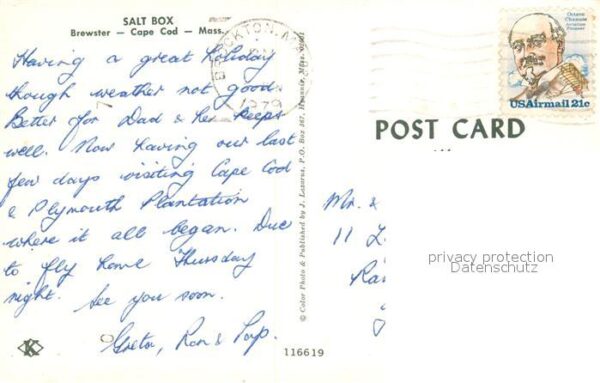 SALT BOX
Brewster - Cape Cod - Mass.
Having a great holiday
though weather not good.
Better for Dad & he keeps
well. Now having our last
few days visiting Cape Cod
& Plymouth Plantation
where it all began. Due
to fly home Thursday
night. See you soon.
Greta, Ron & Pop.
K
116619
© Color Photo & Published by J. Lazarus, P.O. Box 367, Hyannis, Mass.
BROCKTON, MA
1979
Octave
Chanute
Aviation
Pioneer
USAirmail 21c
POST CARD
Mr. &
11
privacy protection
Datenschutz